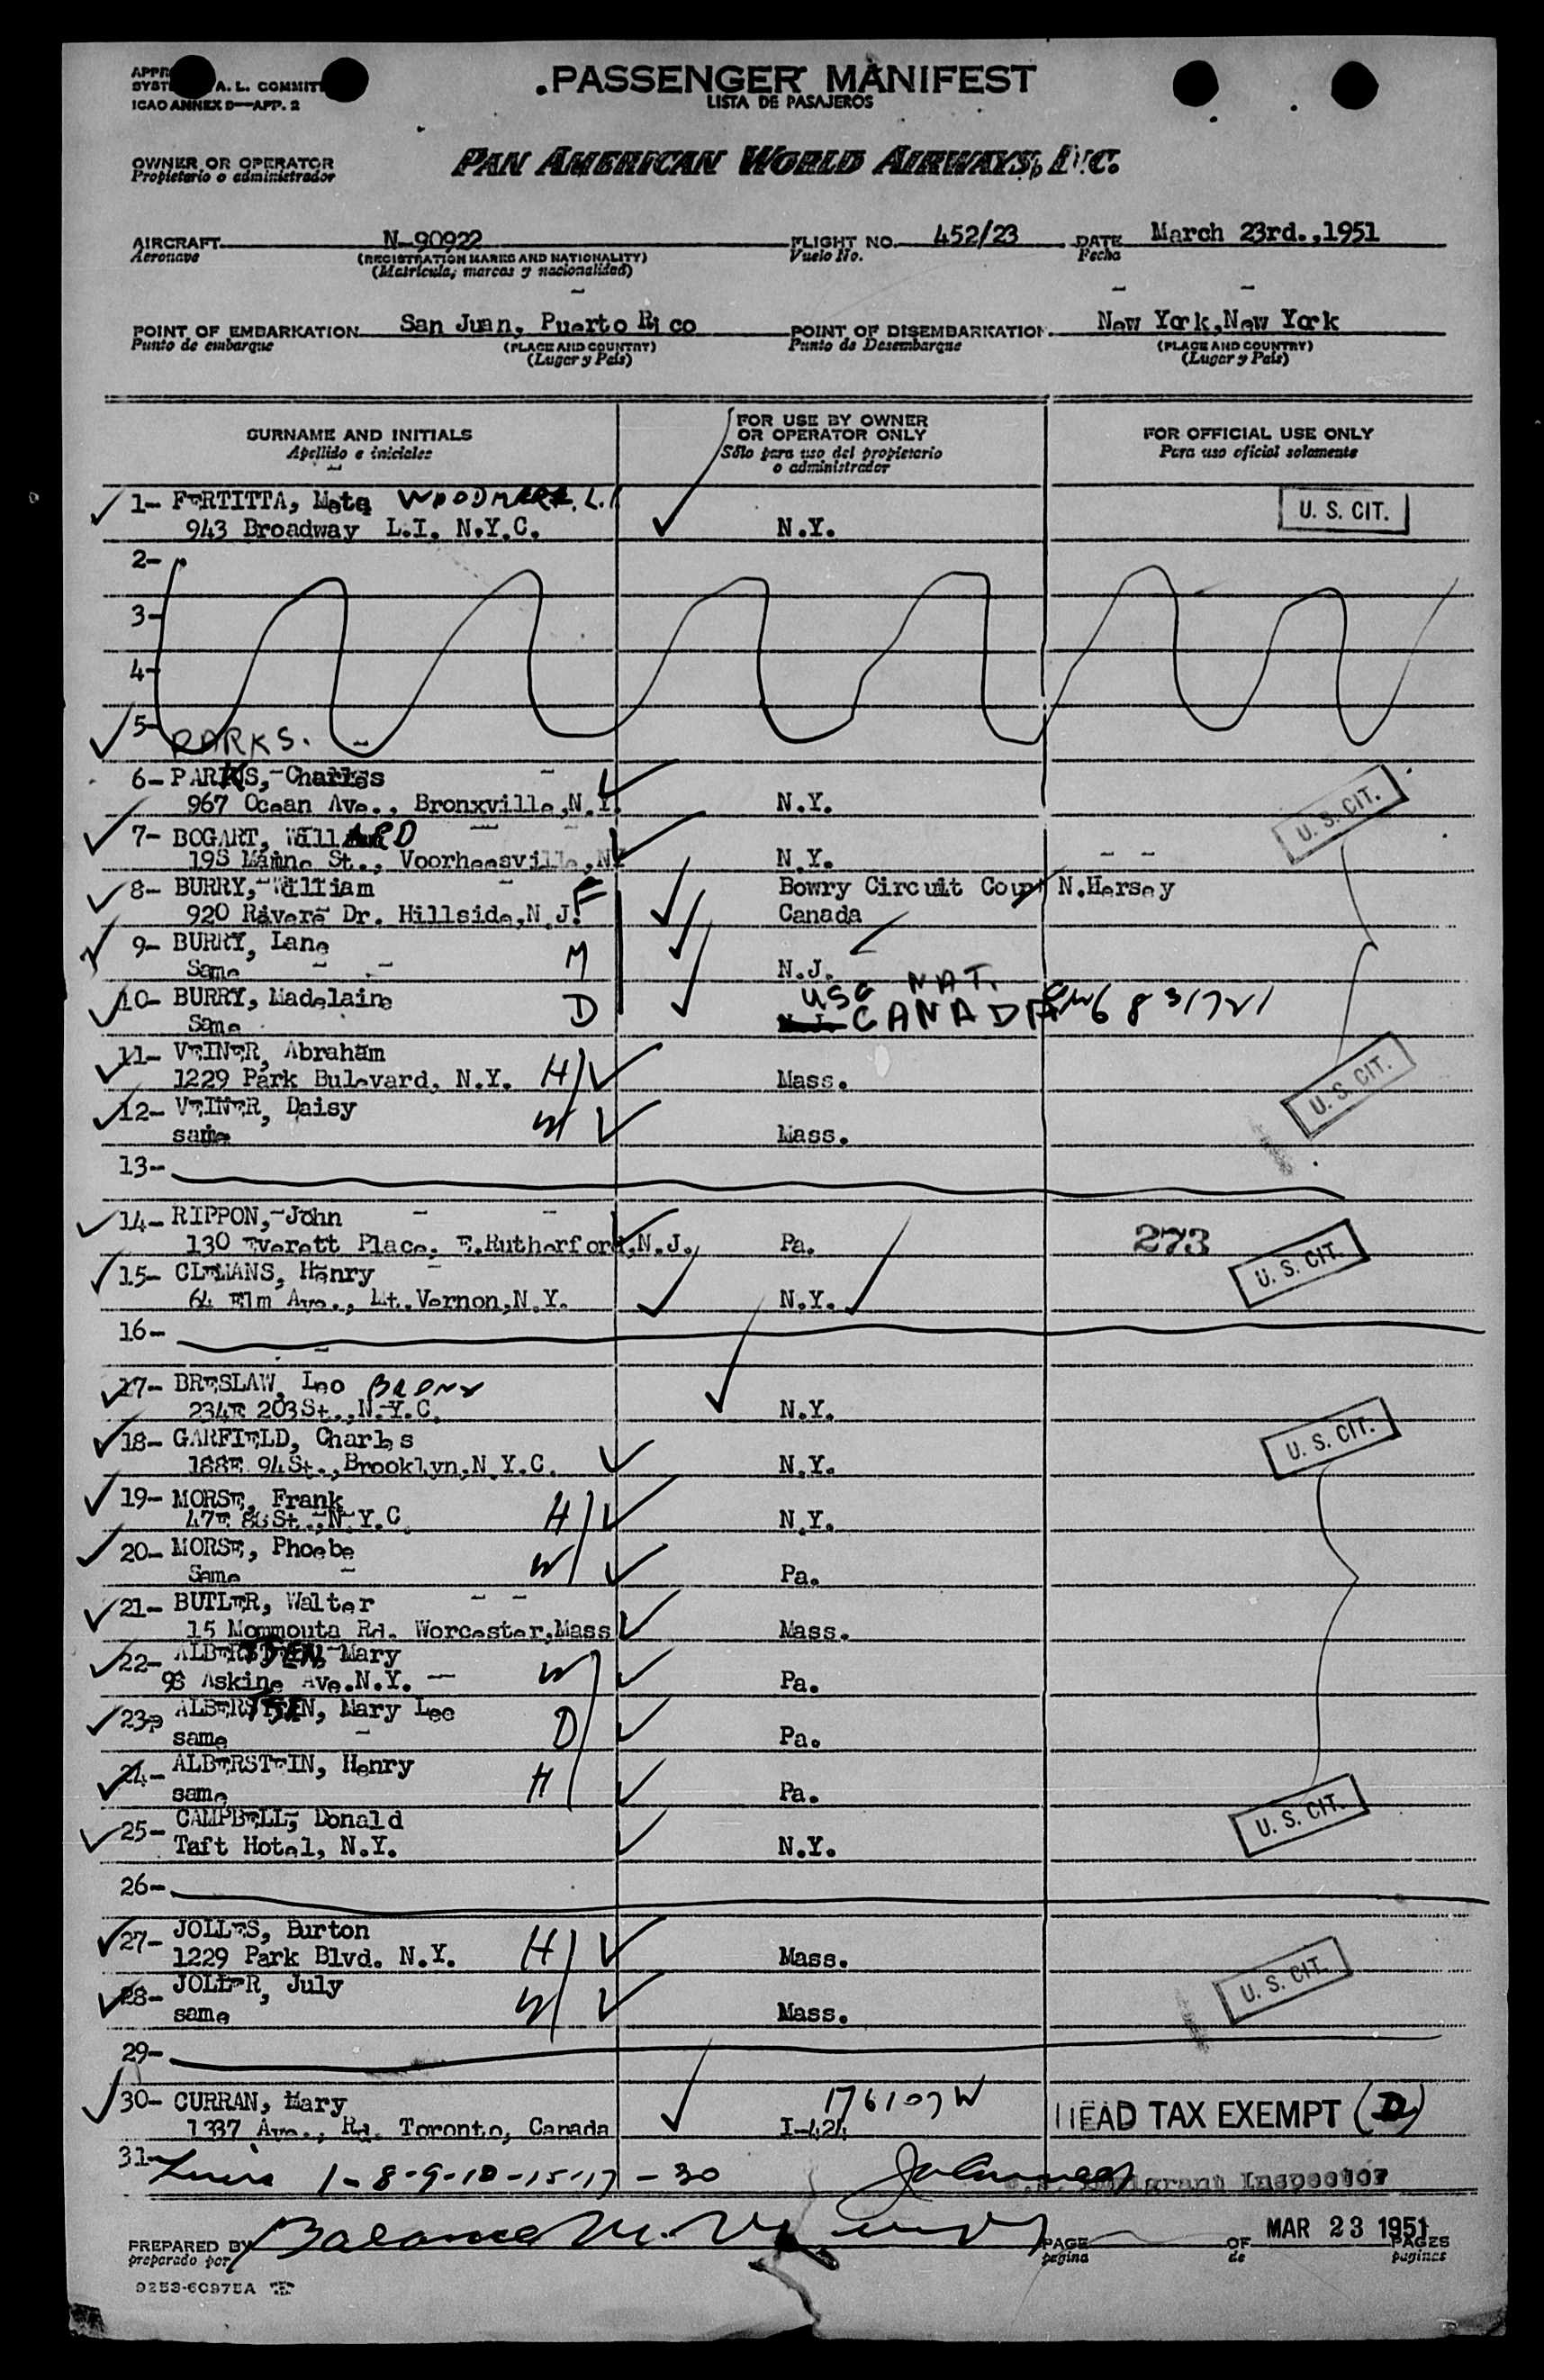 APPR
SYST A. L. COMMIT
ICAO ANNEX 9—APP. 2
PASSENGER MANIFEST
LISTA DE PASAJEROS
OWNER OR OPERATOR
Propietario o administrador
PAN AMERICAN WORLD AIRWAYS, INC.
AIRCRAFT N-90922 FLIGHT NO. 452/23 DATE March 23rd.,1951
Aeronave (REGISTRATION MARKS AND NATIONALITY) Vuelo No. Fecha
(Matricula, marcas y nacionalidad)
POINT OF EMBARKATION San Juan, Puerto Rico POINT OF DISEMBARKATION New York,New York
Punto de embarque (PLACE AND COUNTRY) Punto de Desembarque (PLACE AND COUNTRY)
(Lugar y País) (Lugar y País)
SURNAME AND INITIALS FOR USE BY OWNER OR OPERATOR ONLY FOR OFFICIAL USE ONLY
Apellido e iniciales Sólo para uso del propietario o administrador Para uso oficial solamente
1- FERTITTA, Meta WOODMERE, L.I.
943 Broadway L.I. N.Y.C. N.Y. U. S. CIT.
2-
3-
4-
5-
PARKS.
6- PARKS, Charles
967 Ocean Ave., Bronxville,N.Y. N.Y. U. S. CIT.
7- BOGART, WillARD
198 Maine St., Voorheesville,NY N.Y.
8- BURRY, William F Bowry Circuit Court N.Hersey
920 Rivere Dr. Hillside,N.J. Canada
9- BURRY, Lane M
Same N.J.
10- BURRY, Madelaine D USC NAT.
Same CANADA 6831721
11- VEINER, Abraham
1229 Park Bulevard, N.Y. H Mass.
12- VEINER, Daisy W U. S. CIT.
same Mass.
13-
14- RIPPON, John
130 Everett Place, E.Rutherford,N.J. Pa. 273 U. S. CIT.
15- CLEMANS, Henry
64 Elm Ave., Mt.Vernon,N.Y. N.Y.
16-
17- BRESLAW, Leo BRONX
234E 203St.,N.Y.C. N.Y.
18- GARFIELD, Charles U. S. CIT.
188E 94St.,Brooklyn,N.Y.C. N.Y.
19- MORSE, Frank
47E 86St.,N.Y.C. H N.Y.
20- MORSE, Phoebe
Same W Pa.
21- BUTLER, Walter
15 Mommouta Rd. Worcester,Mass Mass.
22- ALBERSTEIN, Mary
98 Askine Ave.N.Y. W Pa.
23- ALBERSTEIN, Mary Lee
same D Pa.
24- ALBERSTEIN, Henry
same H Pa.
25- CAMPBELL, Donald U. S. CIT.
Taft Hotel, N.Y. N.Y.
26-
27- JOLLES, Burton
1229 Park Blvd. N.Y. H Mass.
28- JOLLER, July U. S. CIT.
same W Mass.
29-
30- CURRAN, Mary 176107W
1337 Ave., Rd. Toronto, Canada I-424 HEAD TAX EXEMPT (D)
31- 1-8-9-10-15-17-30 Immigrant Inspector
MAR 23 1951
PREPARED BY Balance PAGE OF PAGES
preparado por página de páginas
9253-60975A